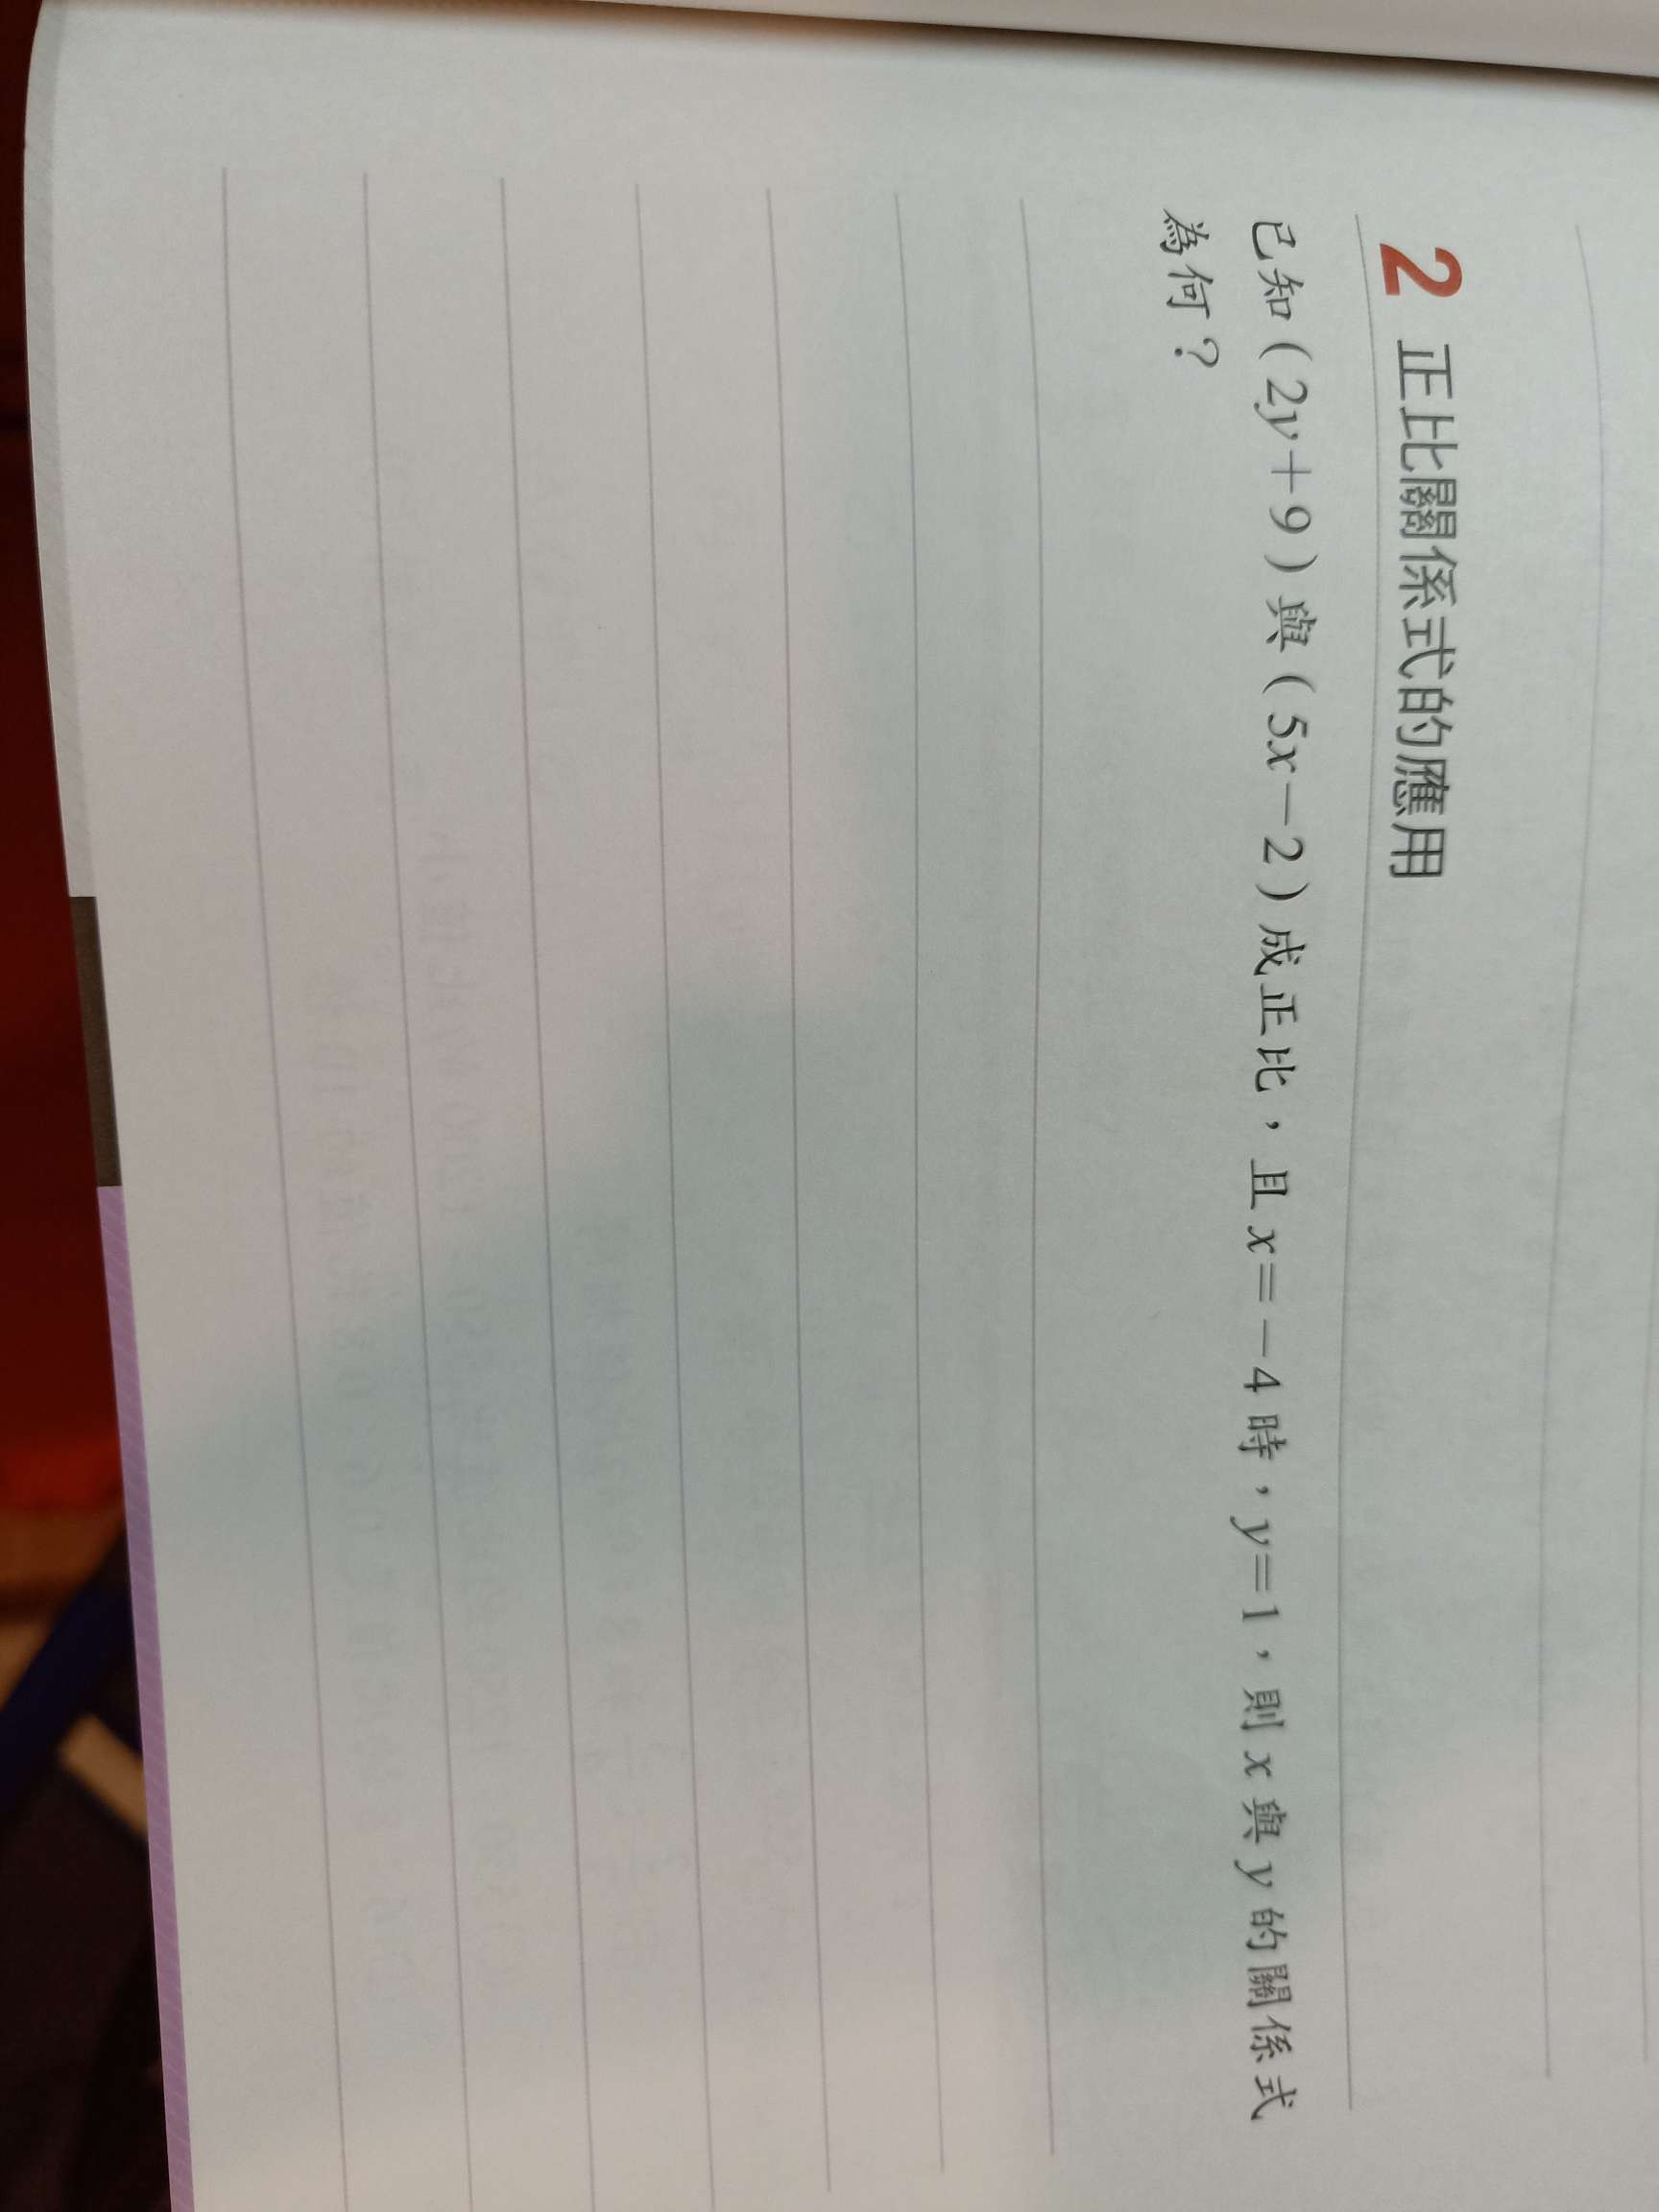 2 正比關係式的應用
已知(2y+9)與(5x-2)成正比,且x=-4時,y=1,則x與y的關係式
為何?